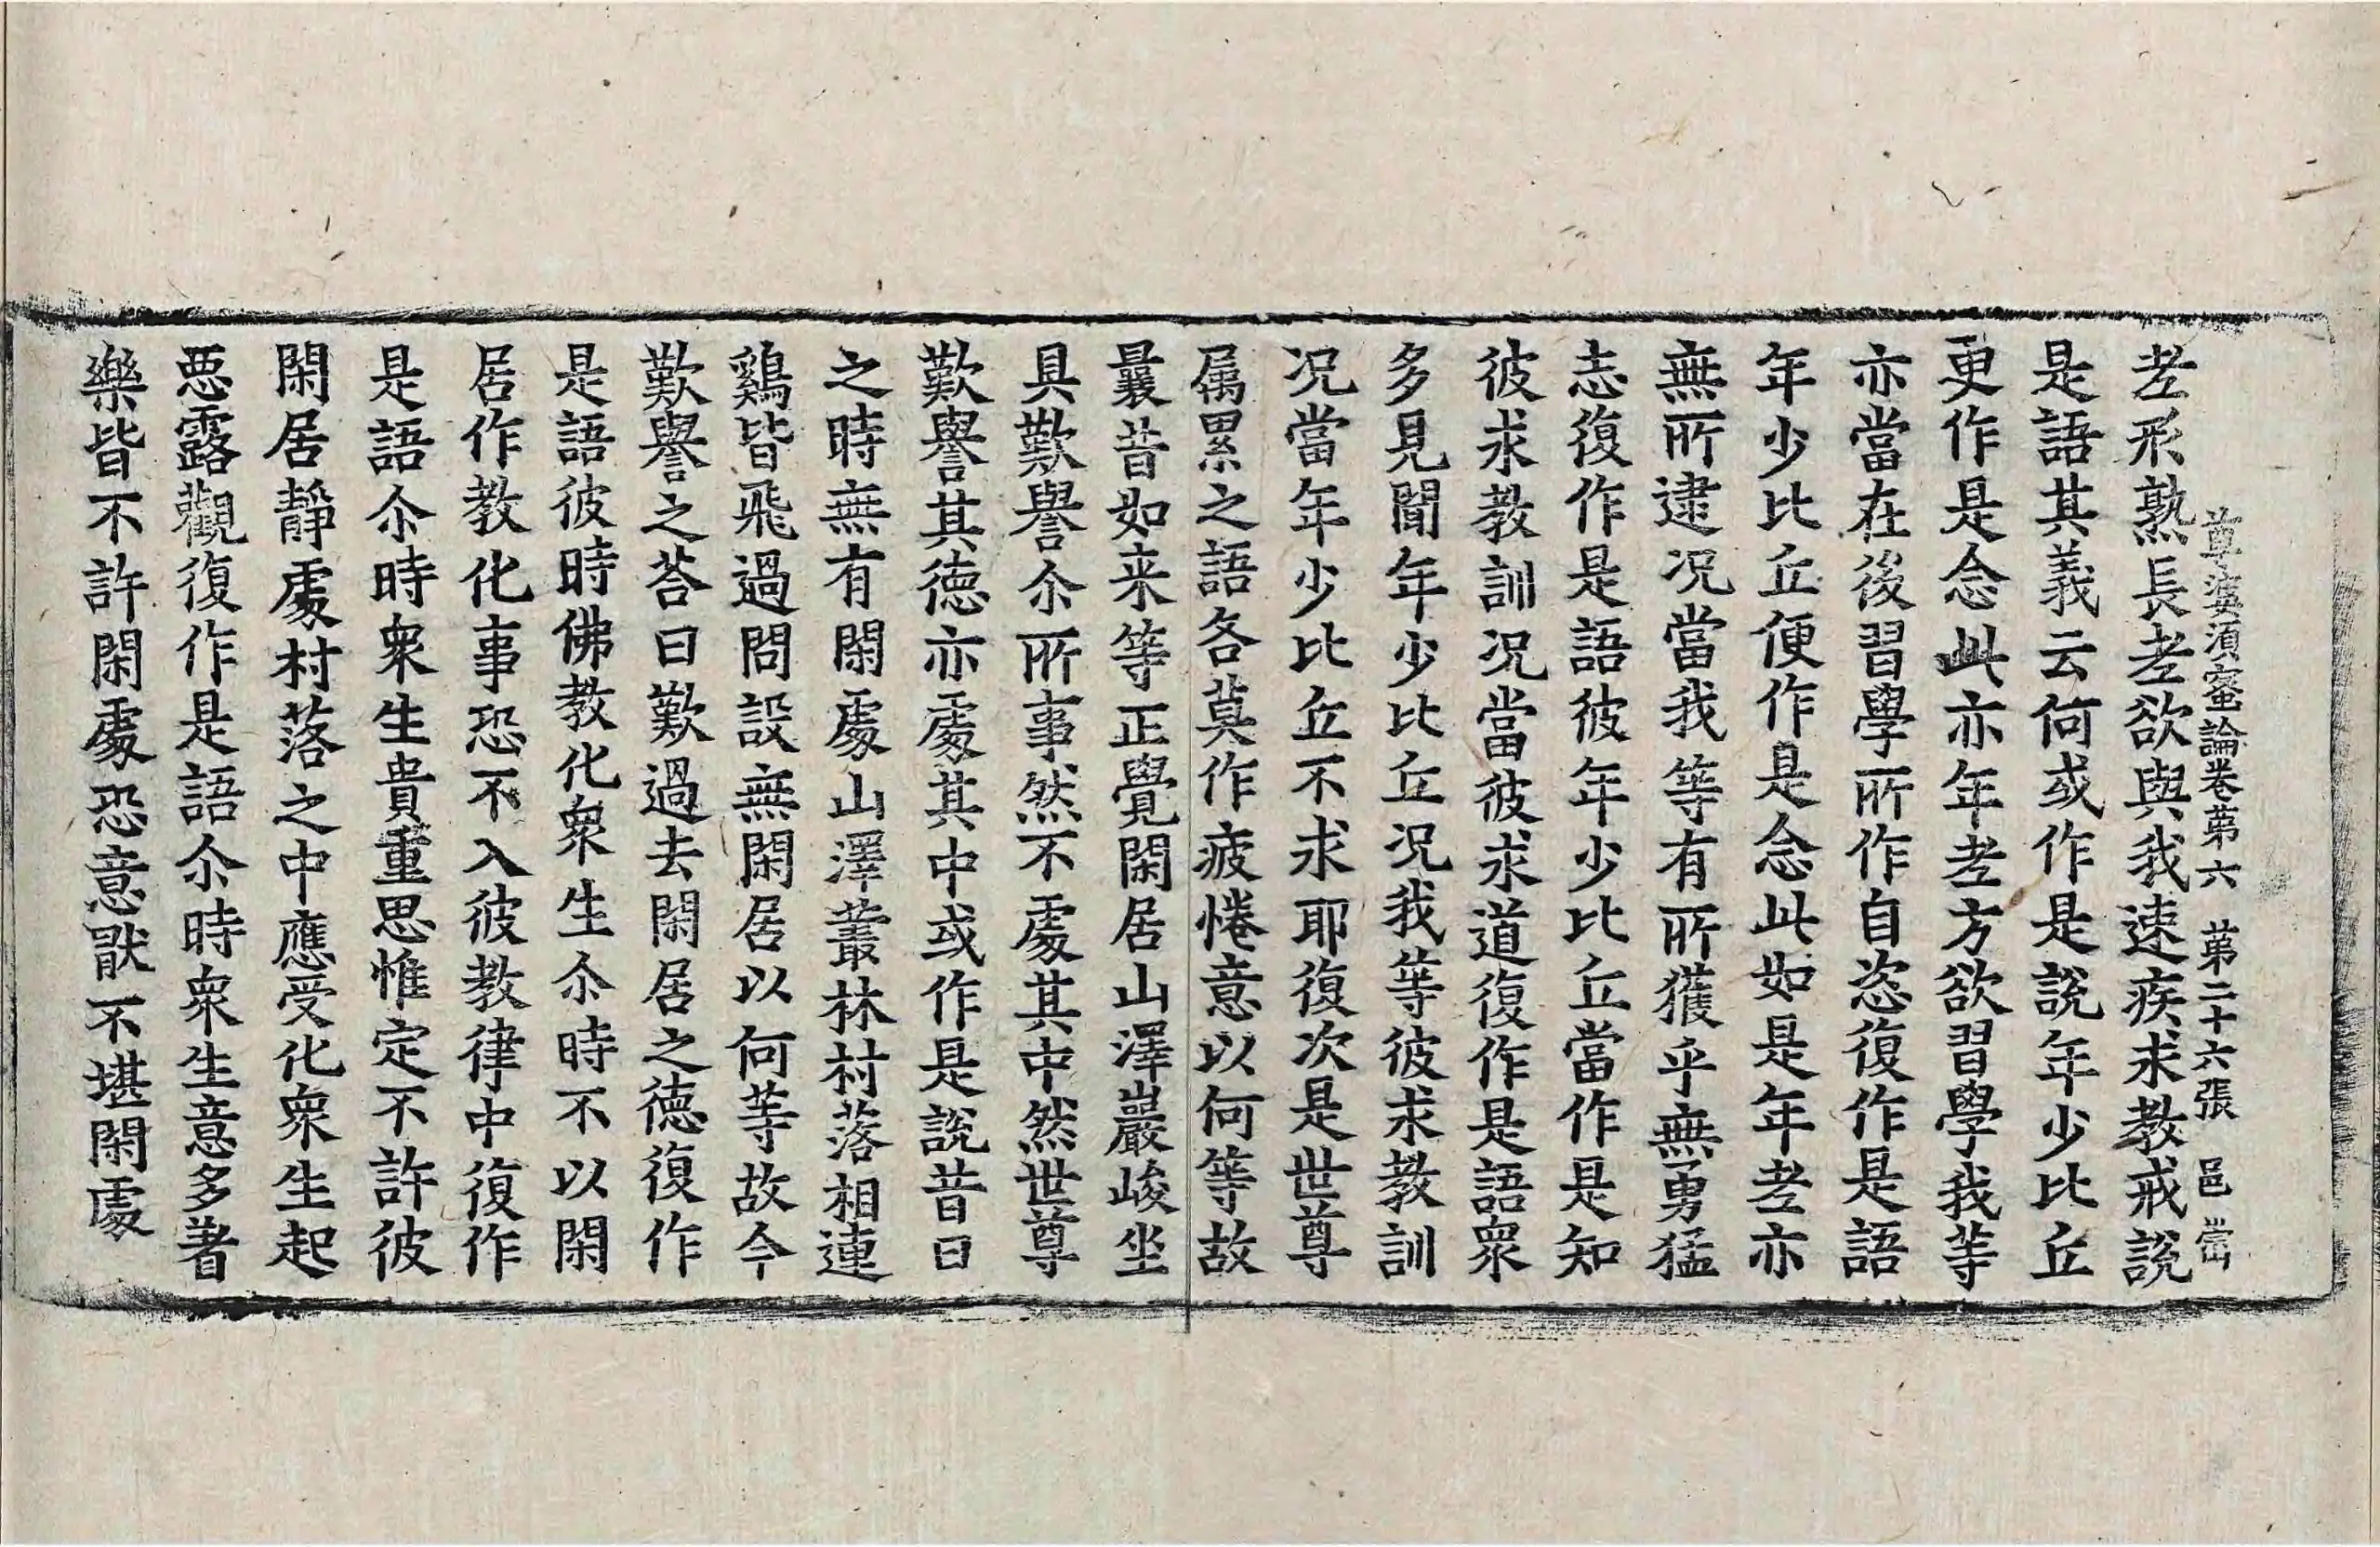 尊婆須蜜論卷苐六　苐二十六張　邑
老形熟長老欲與我速疾求教戒說
是語其義云何或作是說年少比丘
更作是念此亦年老方欲習學我等
亦當在後習學所作自恣復作是語
年少比丘便作是念此如是年老亦
無所逮況當我等有所獲乎無勇猛
志復作是語彼年少比丘當作是知
彼求教訓況當彼求道復作是語衆
多見聞年少比丘況我等彼求教訓
況當年少比丘不求耶復次是世尊
屬累之語各莫作疲惓意以何等故
曩昔如来等正覺閑居山澤巖峻坐
具歎譽尒所事然不處其中然世尊
歎譽其徳亦處其中或作是說昔日
之時無有閑處山澤叢林村落相連
鷄皆飛過問設無閑居以何等故今
歎譽之荅曰歎過去閑居之徳復作
是語彼時佛教化衆生尒時不以閑
居作教化事恐不入彼教律中復作
是語尒時衆生貴重思惟定不許彼
閑居靜處村落之中應受化衆生起
惡露觀復作是語尒時衆生意多著
樂皆不許閑處恐意猒不堪閑處